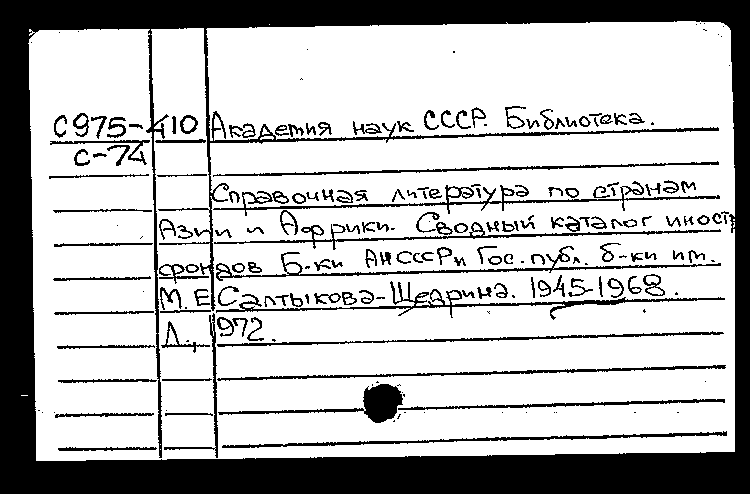 С975-410 Академия наук СССР. Библиотека.
С-74
Справочная литература по странам
Азии и Африки. Сводный каталог иност
фондов Б-ки АН СССР и Гос. публ. б-ки им.
М.Е Салтыкова-Щедрина. 1945-1968.
Л., 1972.